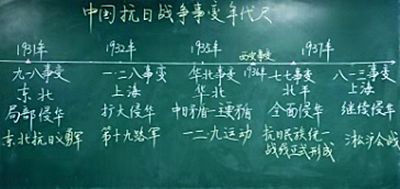 中国抗日战争事变年代尺
1931年 1932年 1935年 西安事变 1936年 1937年
九一八事变 一·二八事变 华北事变 七七事变 八一三事变
东北 上海 华北 北平 上海
局部侵华 扩大侵华 中日矛盾→主要矛盾 全面侵华 继续侵华
东北抗日义勇军 第十九路军 一二·九运动 抗日民族统一 淞沪会战
战线正式形成